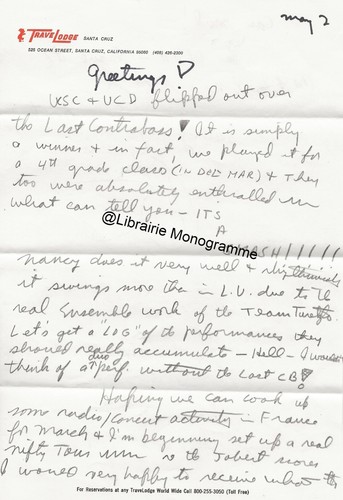 TRAVELODGE SANTA CRUZ
525 OCEAN STREET, SANTA CRUZ, CALIFORNIA 95060 (408) 426-2300
may 2
Greetings
USC & UCD flipped out over
the Last Contrabass! It is simply
a winner & in fact, we played it for
a 4th grade class (IN DEL MAR) & they
too were absolutely enthralled
what can I tell you - ITS
A
@Librairie Monogramme
SMASH!!!!!!
Nancy does it very well & thinks
it swings more than in L.V. due to the
real Ensemble work of the Team
Let's get a "LOG" of the performances they
should really accumulate - Hell - I wouldn't
think of a duo perf. without the Last CB!
Hoping we can cook up
some radio/concert activity in France
for March & I'm beginning set up a real
nifty Tour re the Jobert scores
I would very happy to receive what
For Reservations at any TraveLodge World Wide Call 800-255-3050 (Toll Free)